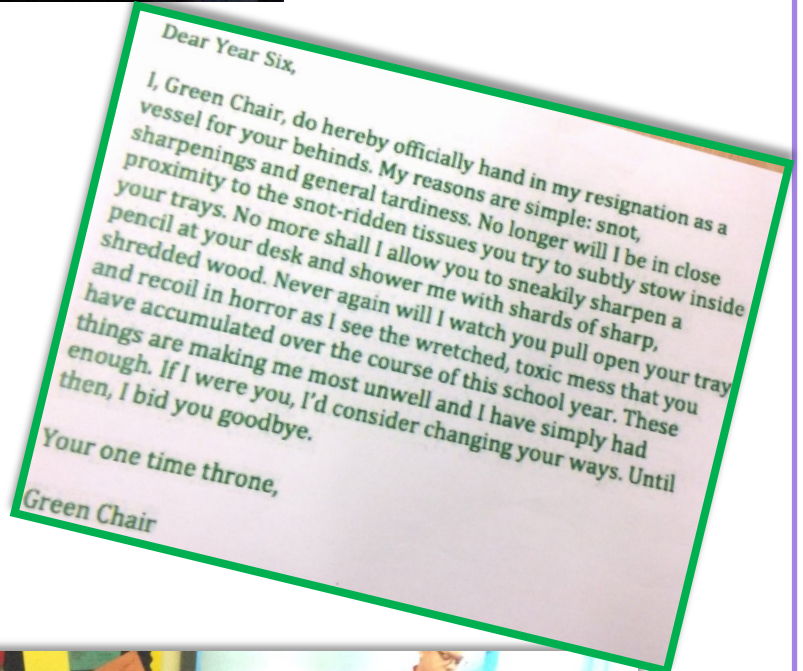 Dear Year Six,
I, Green Chair, do hereby officially hand in my resignation as a
vessel for your behinds. My reasons are simple: snot,
sharpenings and general tardiness. No longer will I be in close
proximity to the snot-ridden tissues you try to subtly stow inside
your trays. No more shall I allow you to sneakily sharpen a
pencil at your desk and shower me with shards of sharp,
shredded wood. Never again will I watch you pull open your tray
and recoil in horror as I see the wretched, toxic mess that you
have accumulated over the course of this school year. These
things are making me most unwell and I have simply had
enough. If I were you, I'd consider changing your ways. Until
then, I bid you goodbye.
Your one time throne,
Green Chair